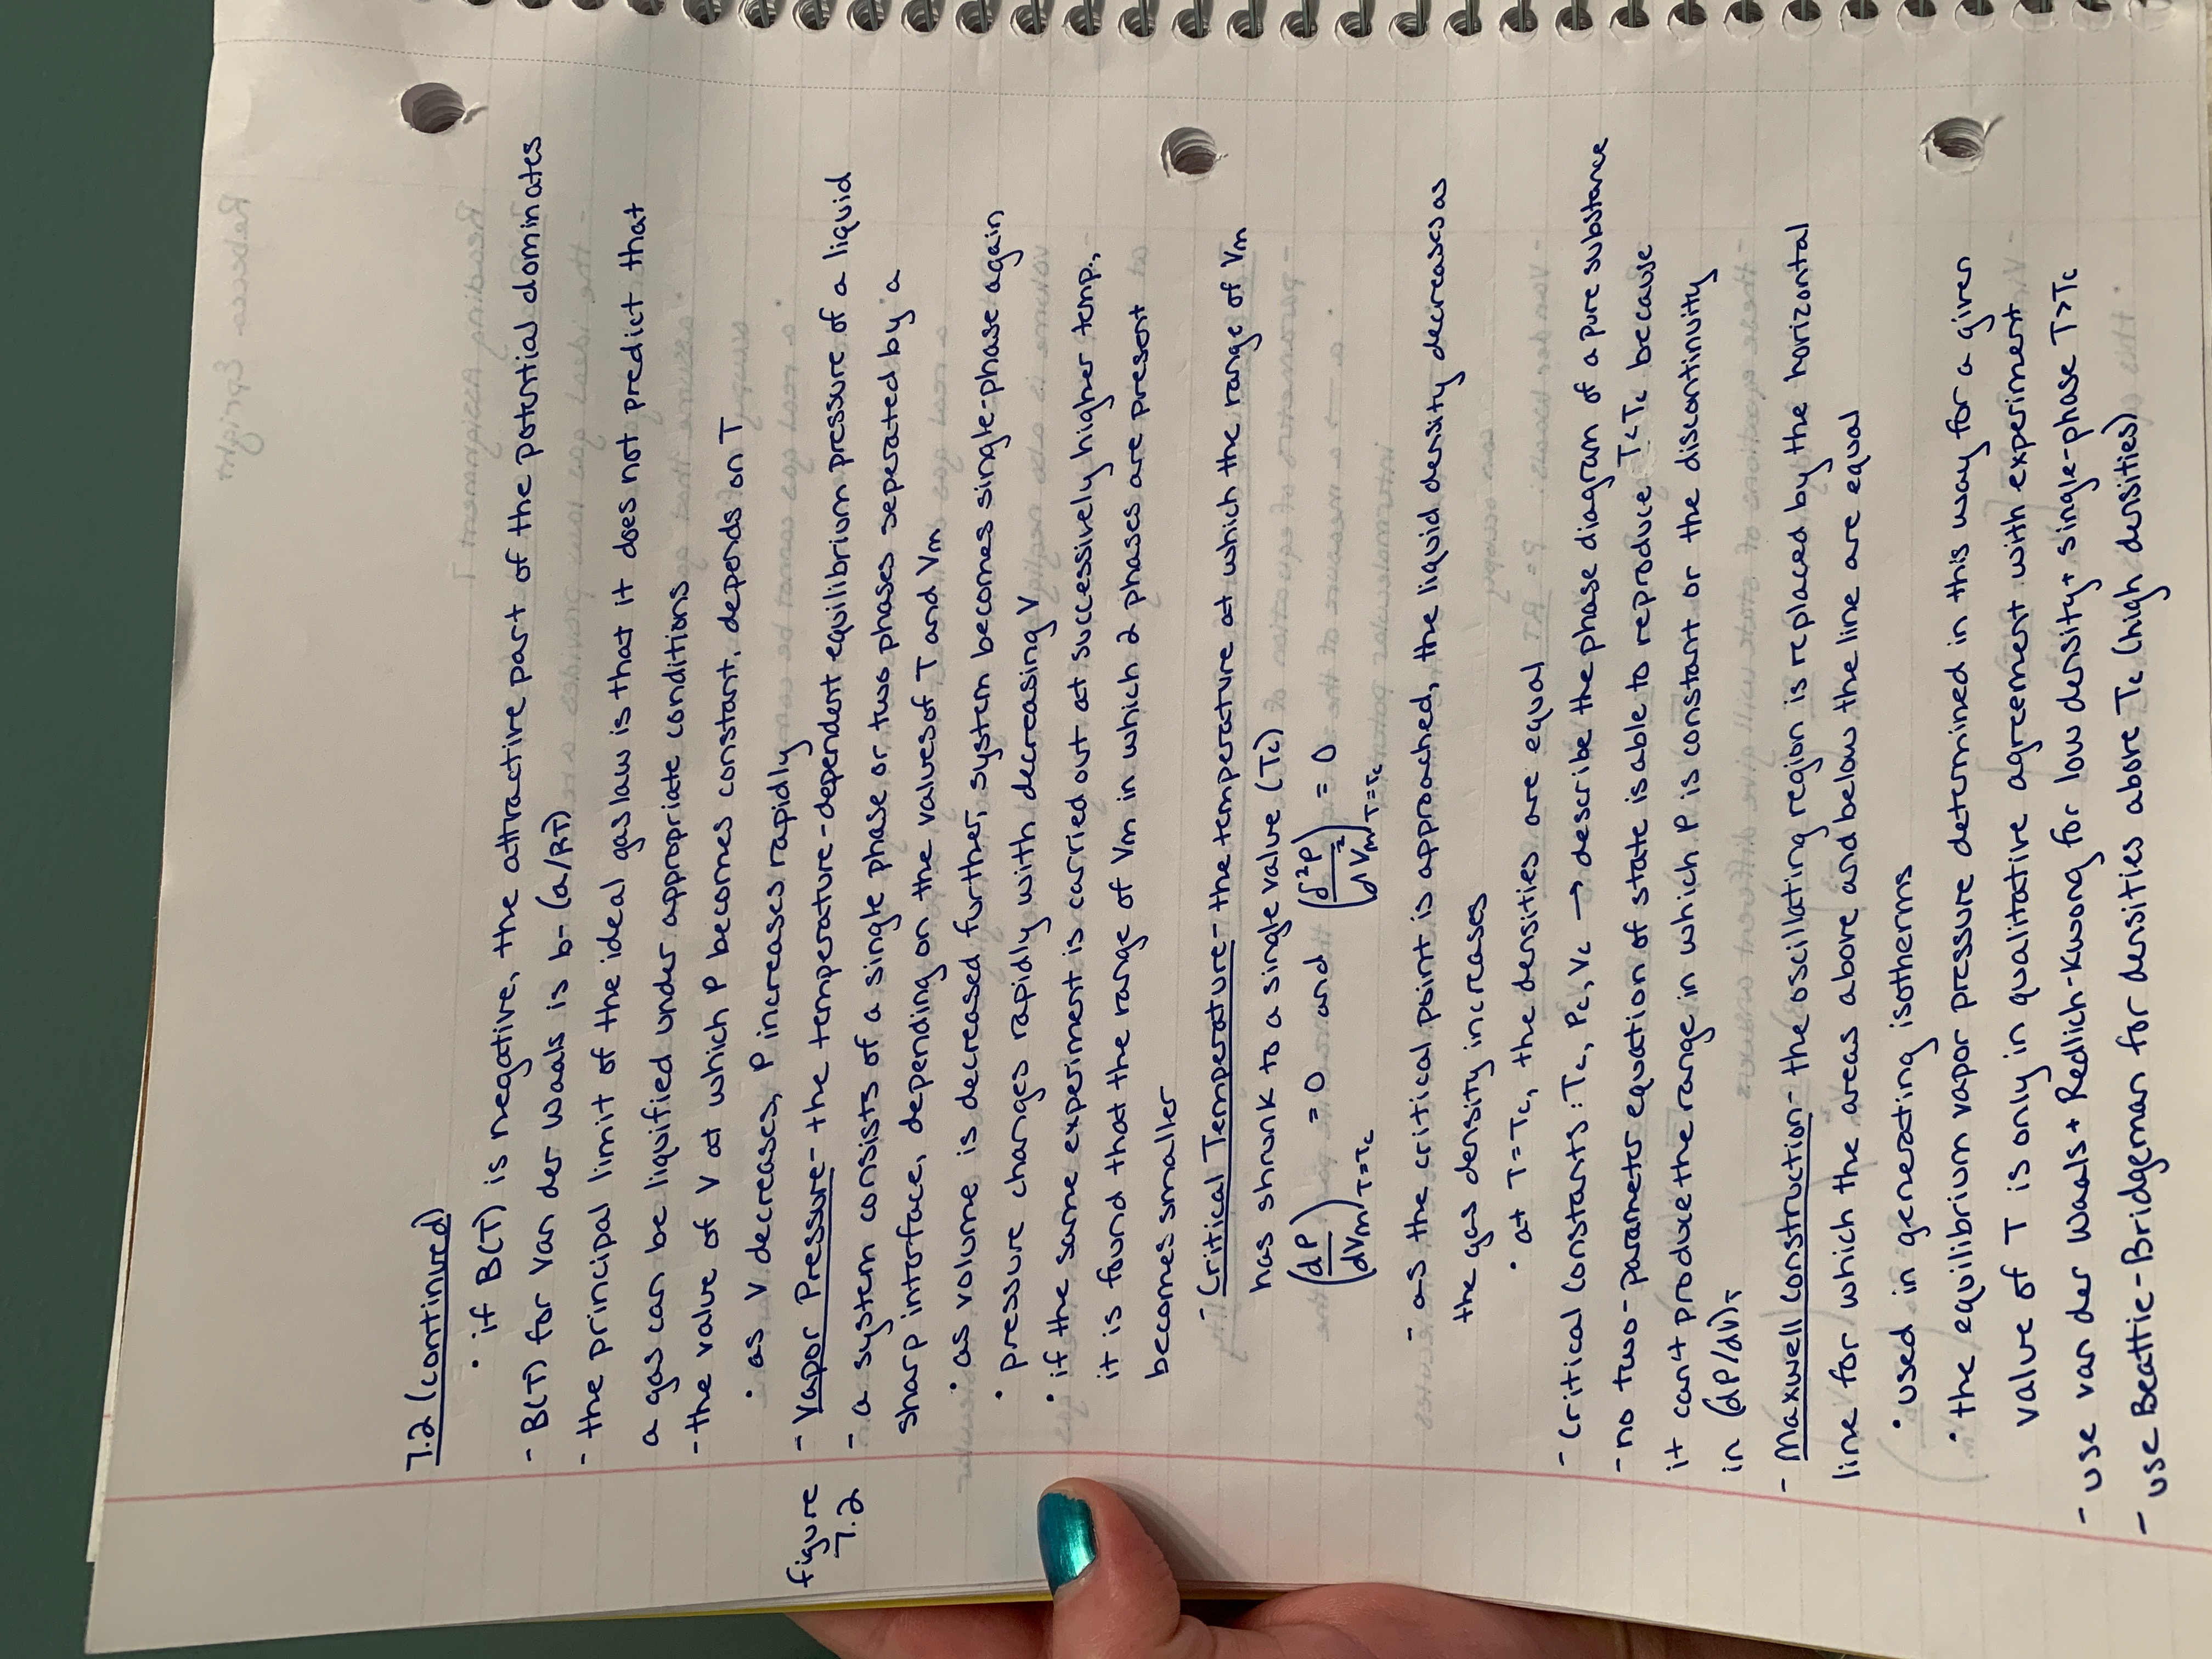 7.2 (continued)
• if B(T) is negative, the attractive part of the potential dominates
- B(T) for Van der Waals is b- (a/RT)
- the principal limit of the ideal gas law is that it does not predict that
a gas can be liquified under appropriate conditions
- the value of V at which P becomes constant, depends on T
• as V decreases, P increases rapidly
figure 7.2
- Vapor Pressure - the temperature-dependent equilibrium pressure of a liquid
- a system consists of a single phase or two phases seperated by a
sharp interface, depending on the values of T and Vm
• as volume is decreased further, system becomes single-phase again
• pressure changes rapidly with decreasing V
• if the same experiment is carried out at successively higher temp.,
it is found that the range of Vm in which 2 phases are present
becomes smaller
- Critical Temperature - the temperature at which the range of Vm
has shrunk to a single value (Tc)
(dP/dVm)T=Tc = 0 and (δ²P/dVm²)T=Tc = 0
- as the critical point is approached, the liquid density decreases as
the gas density increases
• at T=Tc, the densities are equal
- Critical Constants: Tc, Pc, Vc → describe the phase diagram of a pure substance
- no two-parameter equation of state is able to reproduce T<Tc because
it can't produce the range in which P is constant or the discontinuity
in (dP/dV)T
- Maxwell Construction - the oscillating region is replaced by the horizontal
line for which the areas above and below the line are equal
• used in generating isotherms
• the equilibrium vapor pressure determined in this way for a given
value of T is only in qualitative agreement with experiment
- use van der Waals + Redlich-Kwong for low density + single-phase T>Tc
- use Beattie-Bridgeman for densities above Tc (high densities)